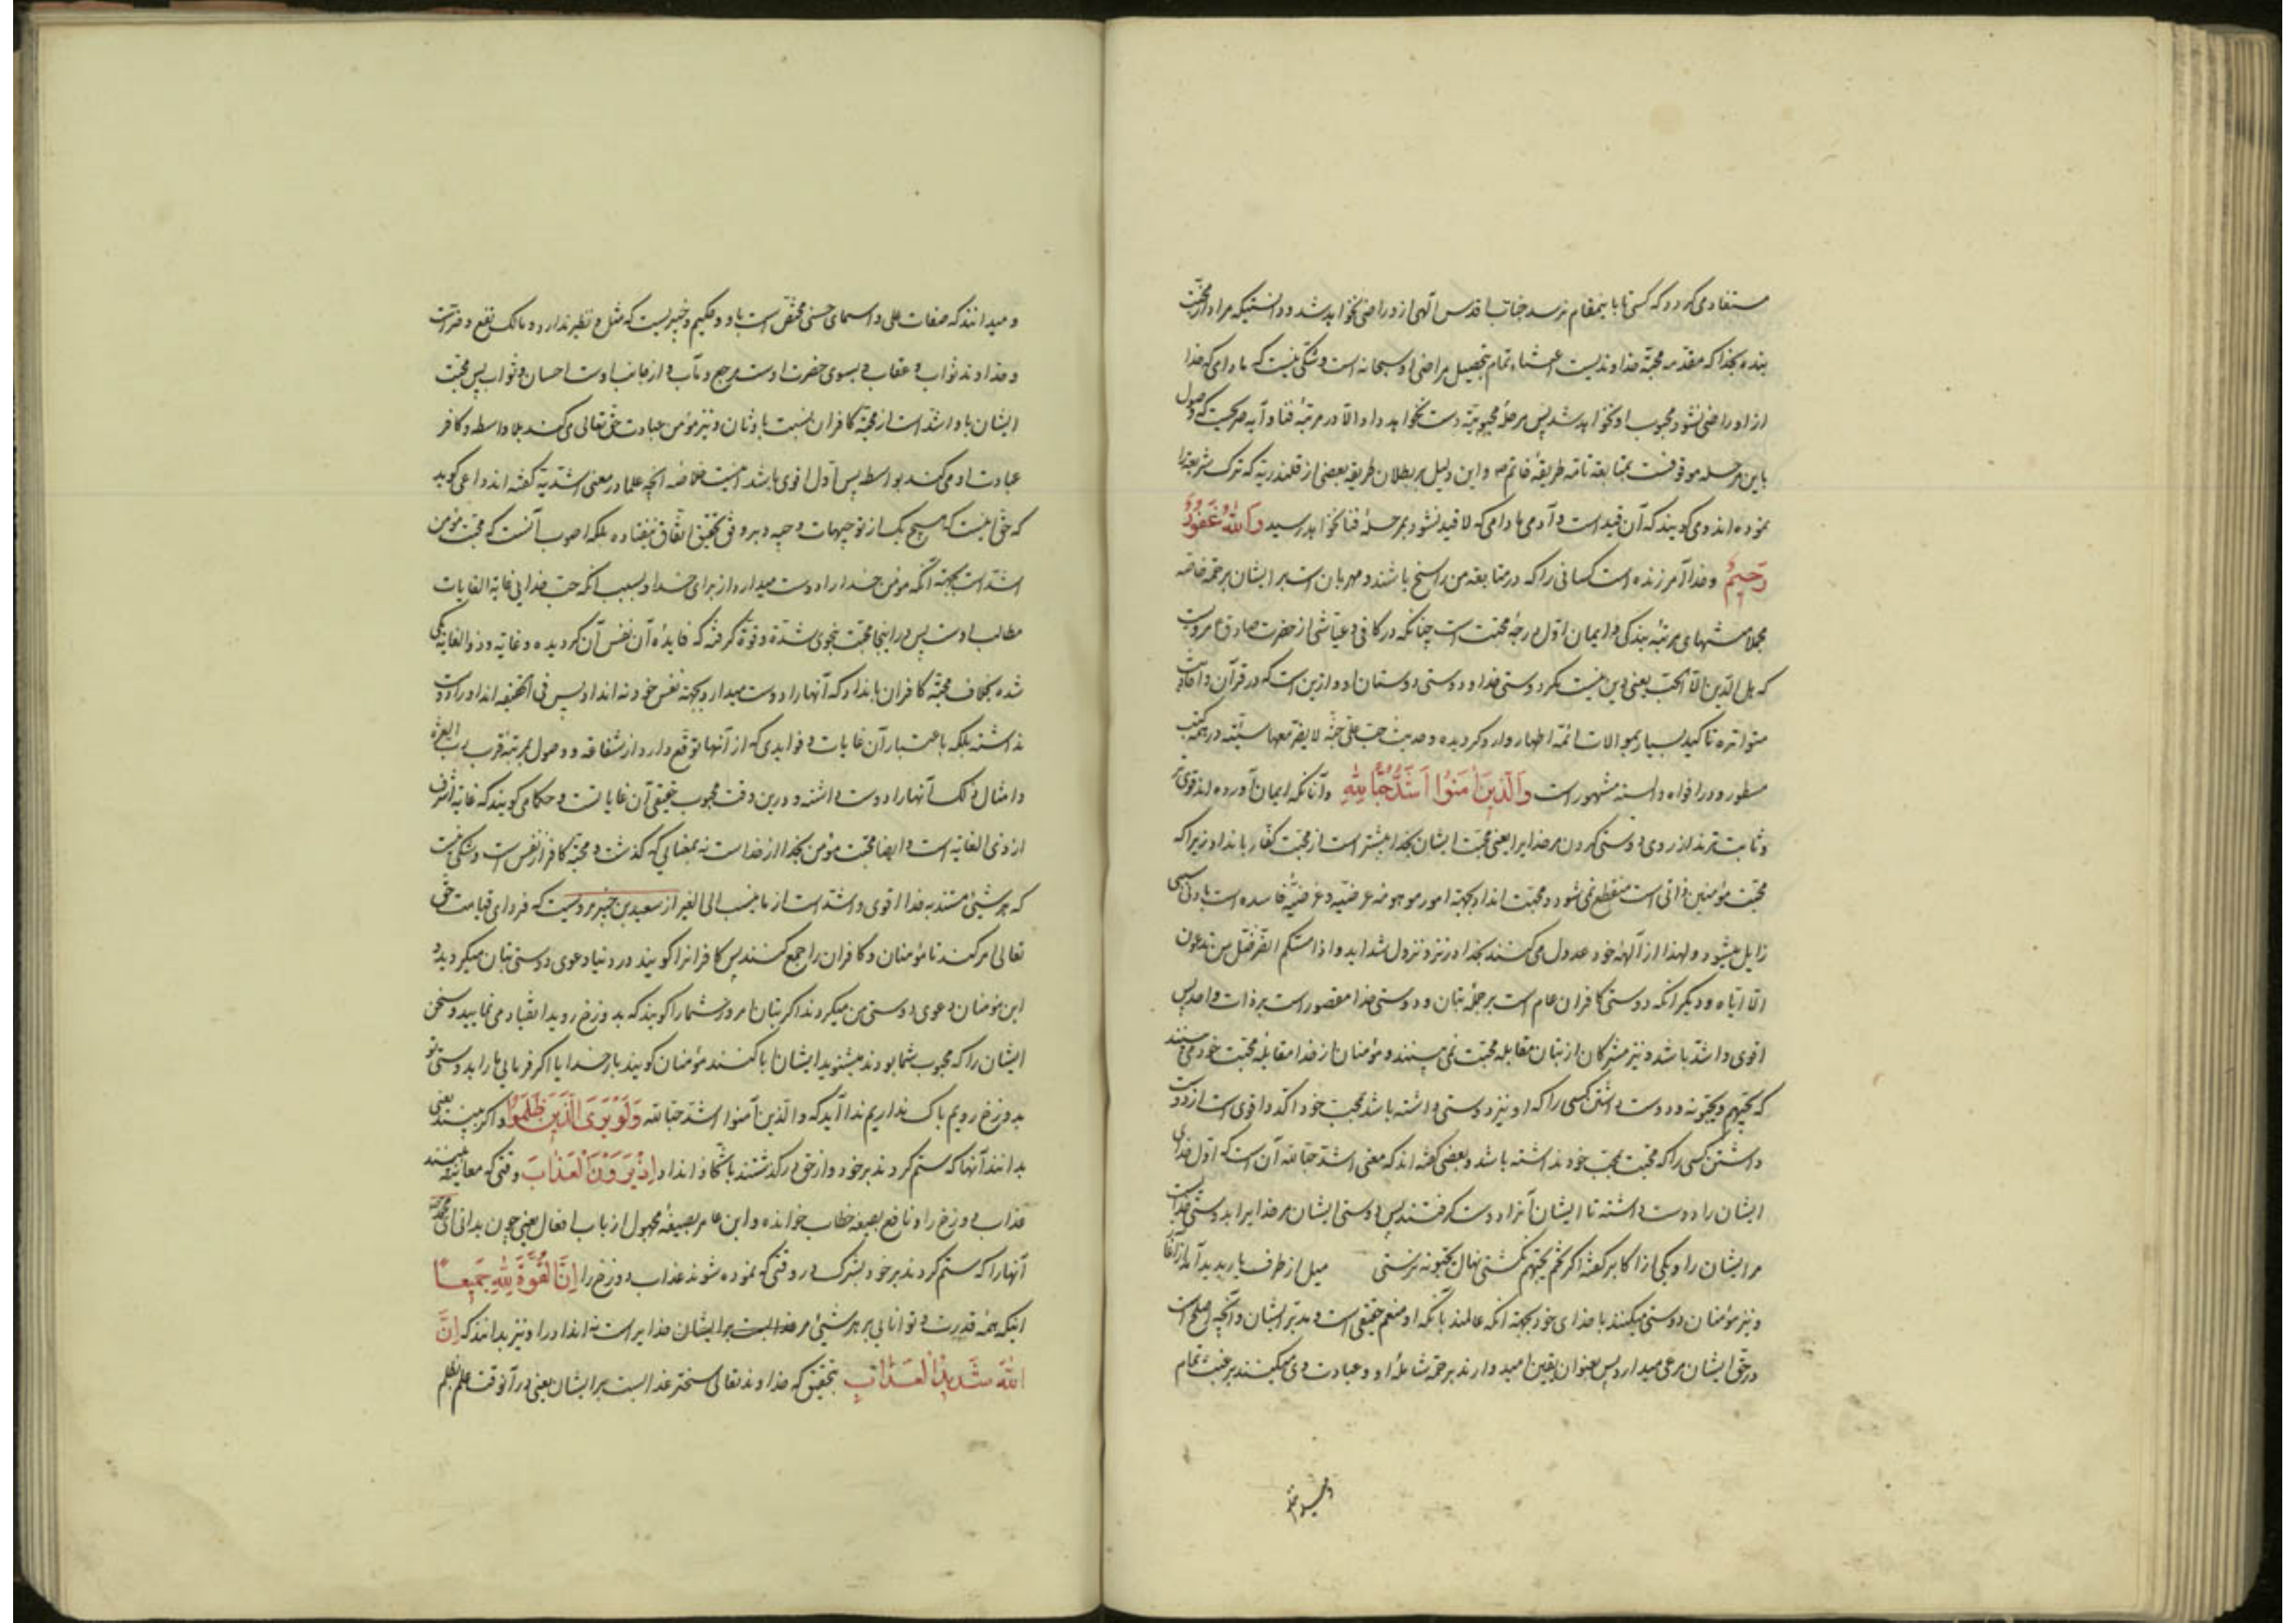 مستفاد می‌گردد که کسی تا باینمقام نرسد جناب اقدس الهی ازو راضی نخواهد شد و دانستیکه مراد از محبت
بنده بخدا که مقدمه محبة خداوندیست اعتناء تمام بتحصیل مراضی او سبحانه است و شکی نیست که مادامی که خدا
ازو راضی نشود محبوب او نخواهد شد پس مرحلۀ محبوبیة دست نخواهد داد الا در مرتبۀ فنا و آیه صریحست که وصول
باین مرحله موقوفست بمتابعة تامه طریقۀ خاتم ص و این دلیل بر بطلان طریقه بعضی از قلندریه که ترک شریعة را
نموده‌اند و می‌گویند که آن قید است و آدمی مادامی که لا قید نشود بمرحلۀ فنا نخواهد رسید وَاللهُ غَفُورٌ
رَحیمٌ و خدا آمرزنده است کسانی را که در متابعة من راسخ باشند و مهربان است بر ایشان برحمة خاصه
مجملا منتهای مرتبۀ بندگی و ایمان اول درجۀ محبت است چنانکه در کافی و عیاشی از حضرت صادق ع مرویست
که هل الدین الا الحب یعنی دین نیست مگر دوستی خدا و دوستی دوستان او و ازین است که در قرآن و احادیث
متواتره تاکید بسیار بموالات ائمه اطهار وارد گردیده و حدیث حب علی حسنة لا یضر معها سیئة در همه کتب
مسطور و در افواه و السنه مشهور است وَالَّذینَ آمَنُوا اَشَدُّ حُبًّا لِلّٰهِ و آنانکه ایمان آورده‌اند قوی‌تر
و ثابت‌ترند از روی دوستی کردن مر خدایرا یعنی محبت ایشان بخدا بیشتر است از محبت کفار بانداد زیرا که
محبت مؤمنین ذاتی است منقطع نمی‌شود و محبت انداد بجهة امور موهومه عرضیه و غرضیۀ فاسده است بادنی سببی
زایل میشود و لهذا از آلهۀ خود عدول می‌کنند بخدا در نزد نزول شداید و اذا مسکم الضر ضل من تدعون
الا ایاه و دیگر آنکه دوستی کافران عام است بر جملۀ بتان و دوستی خدا مقصور است بر ذات واحد پس
اقوی و اشد باشد و نیز مشرکان از بتان مقابلۀ محبت نمی‌بینند و مؤمنان از خدا مقابلۀ محبت خود می‌بینند
که یحبهم و یحبونه و دوست داشتن کسی را که او نیز دوستی داشته باشد بمحب خود اکد و اقوی است از دوست
داشتن کسی را که محبت بمحب خود نداشته باشد و بعضی گفته‌اند که معنی اشد حبا لله آن است که اول خدای
ایشان را دوست داشته تا ایشان آنرا دوست گرفتند پس دوستی ایشان مر خدایرا بدوستی خداست
مر ایشان را و یکی از اکابر گفته اگر تخم یحبهم نکشتی نهال یحبونه نرستی میل از طرف یار پدید آمد از آغاز
و نیز مؤمنان دوستی میکنند با خدای خود بجهة آنکه عالمند بآنکه او منعم حقیقی است و مدبر ایشان و آنچه اصلح است
در حق ایشان مرعی میدارد پس بعنوان یقین امیدوارند برحمة شاملۀ او و عبادت وی میکنند برغبت تمام
و میدانند که صفات علی و اسمای حسنی مختص است باو و حکیم و خبیریست که مثل و نظیر ندارد و مالک نفع و ضر است
و خداوند ثواب و عقاب و بسوی حضرت اوست مرجع و مآب و از جانب اوست احسان و ثواب پس محبت
ایشان باو اشد است از محبة کافران نسبت باوثان و نیز مؤمن عبادت حق تعالی می‌کند بلا واسطه و کافر
عبادت او می‌کند بواسطه پس اول اقوی باشد اینست خلاصه آنچه علما در معنی اشدیة گفته‌اند داعی گوید
که حق اینست که هیچ یک از توجیهات وجیه و بر وفق تحقیق اتفاق نیفتاده بلکه اصوب آنست که محبت مؤمن
اشد است بجهة آنکه مؤمن خدا را دوست میدارد از برای خدا و بسبب آنکه حب خدایی غایة الغایات
مطالب اوست پس درینجا محبت بنحوی شدة و قوة گرفته که فایدۀ آن نفس آن گردیده و غایة و ذو الغایة یکی
شده بخلاف محبة کافران بانداد که آنها را دوست میدارد بجهة نفس خود نه انداد پس فی الحقیقه انداد را دوست
نداشته بلکه باعتبار آن غایات و فوایدی که از آنها توقع دارد از شفاعة و وصول بمرتبۀ قرب رب العزة
و امثال ذلک آنها را دوست داشته و درین وقت محبوب حقیقی آن غایاتست و حکما می‌گویند که غایة اشرف
از ذی الغایة است و ایضا محبت مؤمن بخدا از خداست نه بمعنایی که گذشت و محبة کافر از نفس است و شکی نیست
که هر شیئی مستند بخدا اقوی و اشد است از ما ینسب الی الغیر از سعید بن جبیر مرویست که فردای قیامت حق
تعالی امر کند تا مؤمنان و کافران را جمع کنند پس کافرانرا گویند در دنیا دعوی دوستی بتان میکردید و
این مؤمنان دعوی دوستی من میکردند اگر بتان امروز شما را گویند که بدوزخ روید انقیاد می‌نمایید و سخن
ایشان را که محبوب شما بودند میشنوید ایشان ابا کنند مؤمنان گویند بار خدایا اگر فرمایی ما را بدوستی تو
بدوزخ رویم باک نداریم ندا آید که و الذین آمنوا اشد حبا لله وَلَوْ یَرَی الَّذینَ ظَلَمُوا و اگر ببینند یعنی
بدانند آنها که ستم کردند بر خود و از حق درگذشتند باتخاذ انداد اِذْ یَرَوْنَ الْعَذابَ وقتی که معاینه ببینند
عذاب دوزخ را و نافع بصیغه خطاب خوانده و ابن عامر بصیغۀ مجهول از باب افعال یعنی چون بدانی ای محمد
آنها را که ستم کردند بر خود بشرک در وقتی که نموده شوند عذاب دوزخ را اِنَّ الْقُوَّةَ لِلّٰهِ جَمیعًا
اینکه همۀ قدرت و توانایی بر هر شیئی مر خدایراست نه انداد را و نیز بدانند که اِنَّ
اللّٰهَ شَدیدُ الْعَذابِ بتحقیق که خداوند تعالی سخت عذابست بر ایشان یعنی در آنوقت علم بظلم